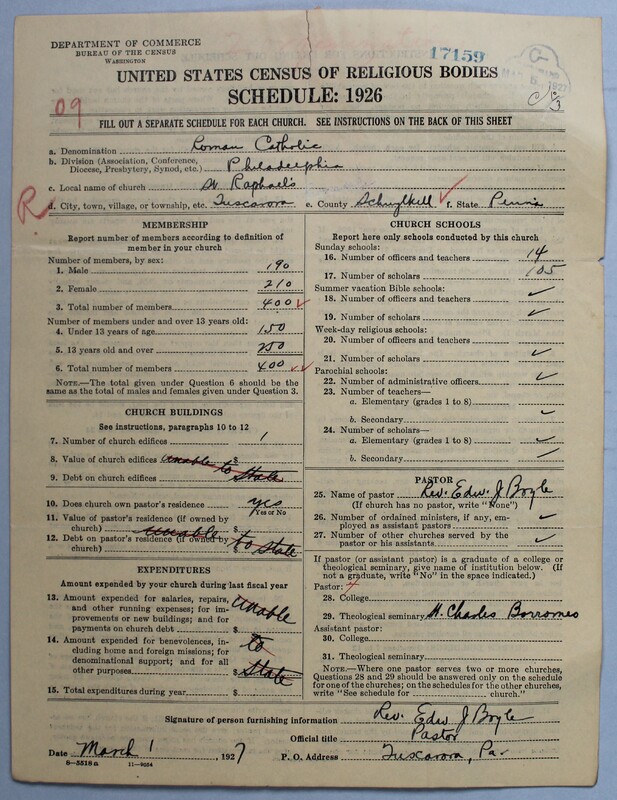 DEPARTMENT OF COMMERCE
BUREAU OF THE CENSUS
WASHINGTON
17159
UNITED STATES CENSUS OF RELIGIOUS BODIES
SCHEDULE: 1926
09
FILL OUT A SEPARATE SCHEDULE FOR EACH CHURCH. SEE INSTRUCTIONS ON THE BACK OF THIS SHEET
a. Denomination Roman Catholic
b. Division (Association, Conference, Diocese, Presbytery, Synod, etc.) Philadelphia
c. Local name of church St Raphael's
R
d. City, town, village, or township, etc. Tuscarora e. County Schuylkill f. State Penn'a
MEMBERSHIP
Report number of members according to definition of
member in your church
Number of members, by sex:
1. Male 190
2. Female 210
3. Total number of members 400 ✓
Number of members under and over 13 years old:
4. Under 13 years of age 150
5. 13 years old and over 250
6. Total number of members 400 ✓✓
NOTE.—The total given under Question 6 should be the
same as the total of males and females given under Question 3.
CHURCH BUILDINGS
See instructions, paragraphs 10 to 12
7. Number of church edifices 1
8. Value of church edifices $ unable to
9. Debt on church edifices $ State
10. Does church own pastor's residence? yes
Yes or No
11. Value of pastor's residence (if owned by
church) $ unable
12. Debt on pastor's residence (if owned by
church) $ to State
EXPENDITURES
Amount expended by your church during last fiscal year
13. Amount expended for salaries, repairs,
and other running expenses; for im-
provements or new buildings; and for
payments on church debt $ unable
14. Amount expended for benevolences, in-
cluding home and foreign missions; for
denominational support; and for all
other purposes $ to State
15. Total expenditures during year $
CHURCH SCHOOLS
Report here only schools conducted by this church
Sunday schools:
16. Number of officers and teachers 14
17. Number of scholars 105
Summer vacation Bible schools:
18. Number of officers and teachers ✓
19. Number of scholars ✓
Week-day religious schools:
20. Number of officers and teachers
21. Number of scholars ✓
Parochial schools:
22. Number of administrative officers ✓
23. Number of teachers—
a. Elementary (grades 1 to 8)
b. Secondary ✓
24. Number of scholars—
a. Elementary (grades 1 to 8) ✓
b. Secondary ✓
PASTOR
25. Name of pastor Rev. Edw. J Boyle
(If church has no pastor, write "None")
26. Number of ordained ministers, if any, em-
ployed as assistant pastors ✓
27. Number of other churches served by the
pastor or his assistants ✓
If pastor (or assistant pastor) is a graduate of a college or
theological seminary, give name of institution below. (If
not a graduate, write "No" in the space indicated.)
Pastor:
28. College
29. Theological seminary St. Charles Borromeo
Assistant pastor:
30. College
31. Theological seminary
NOTE.—Where one pastor serves two or more churches,
Questions 28 and 29 should be answered only on the schedule
for one of the churches; on the schedules for the other churches,
write "See schedule for church."
Signature of person furnishing information Rev. Edw J Boyle
Official title Pastor
Date March 1, 1927 P. O. Address Tuscarora, Pa
8-5518a 11-9024